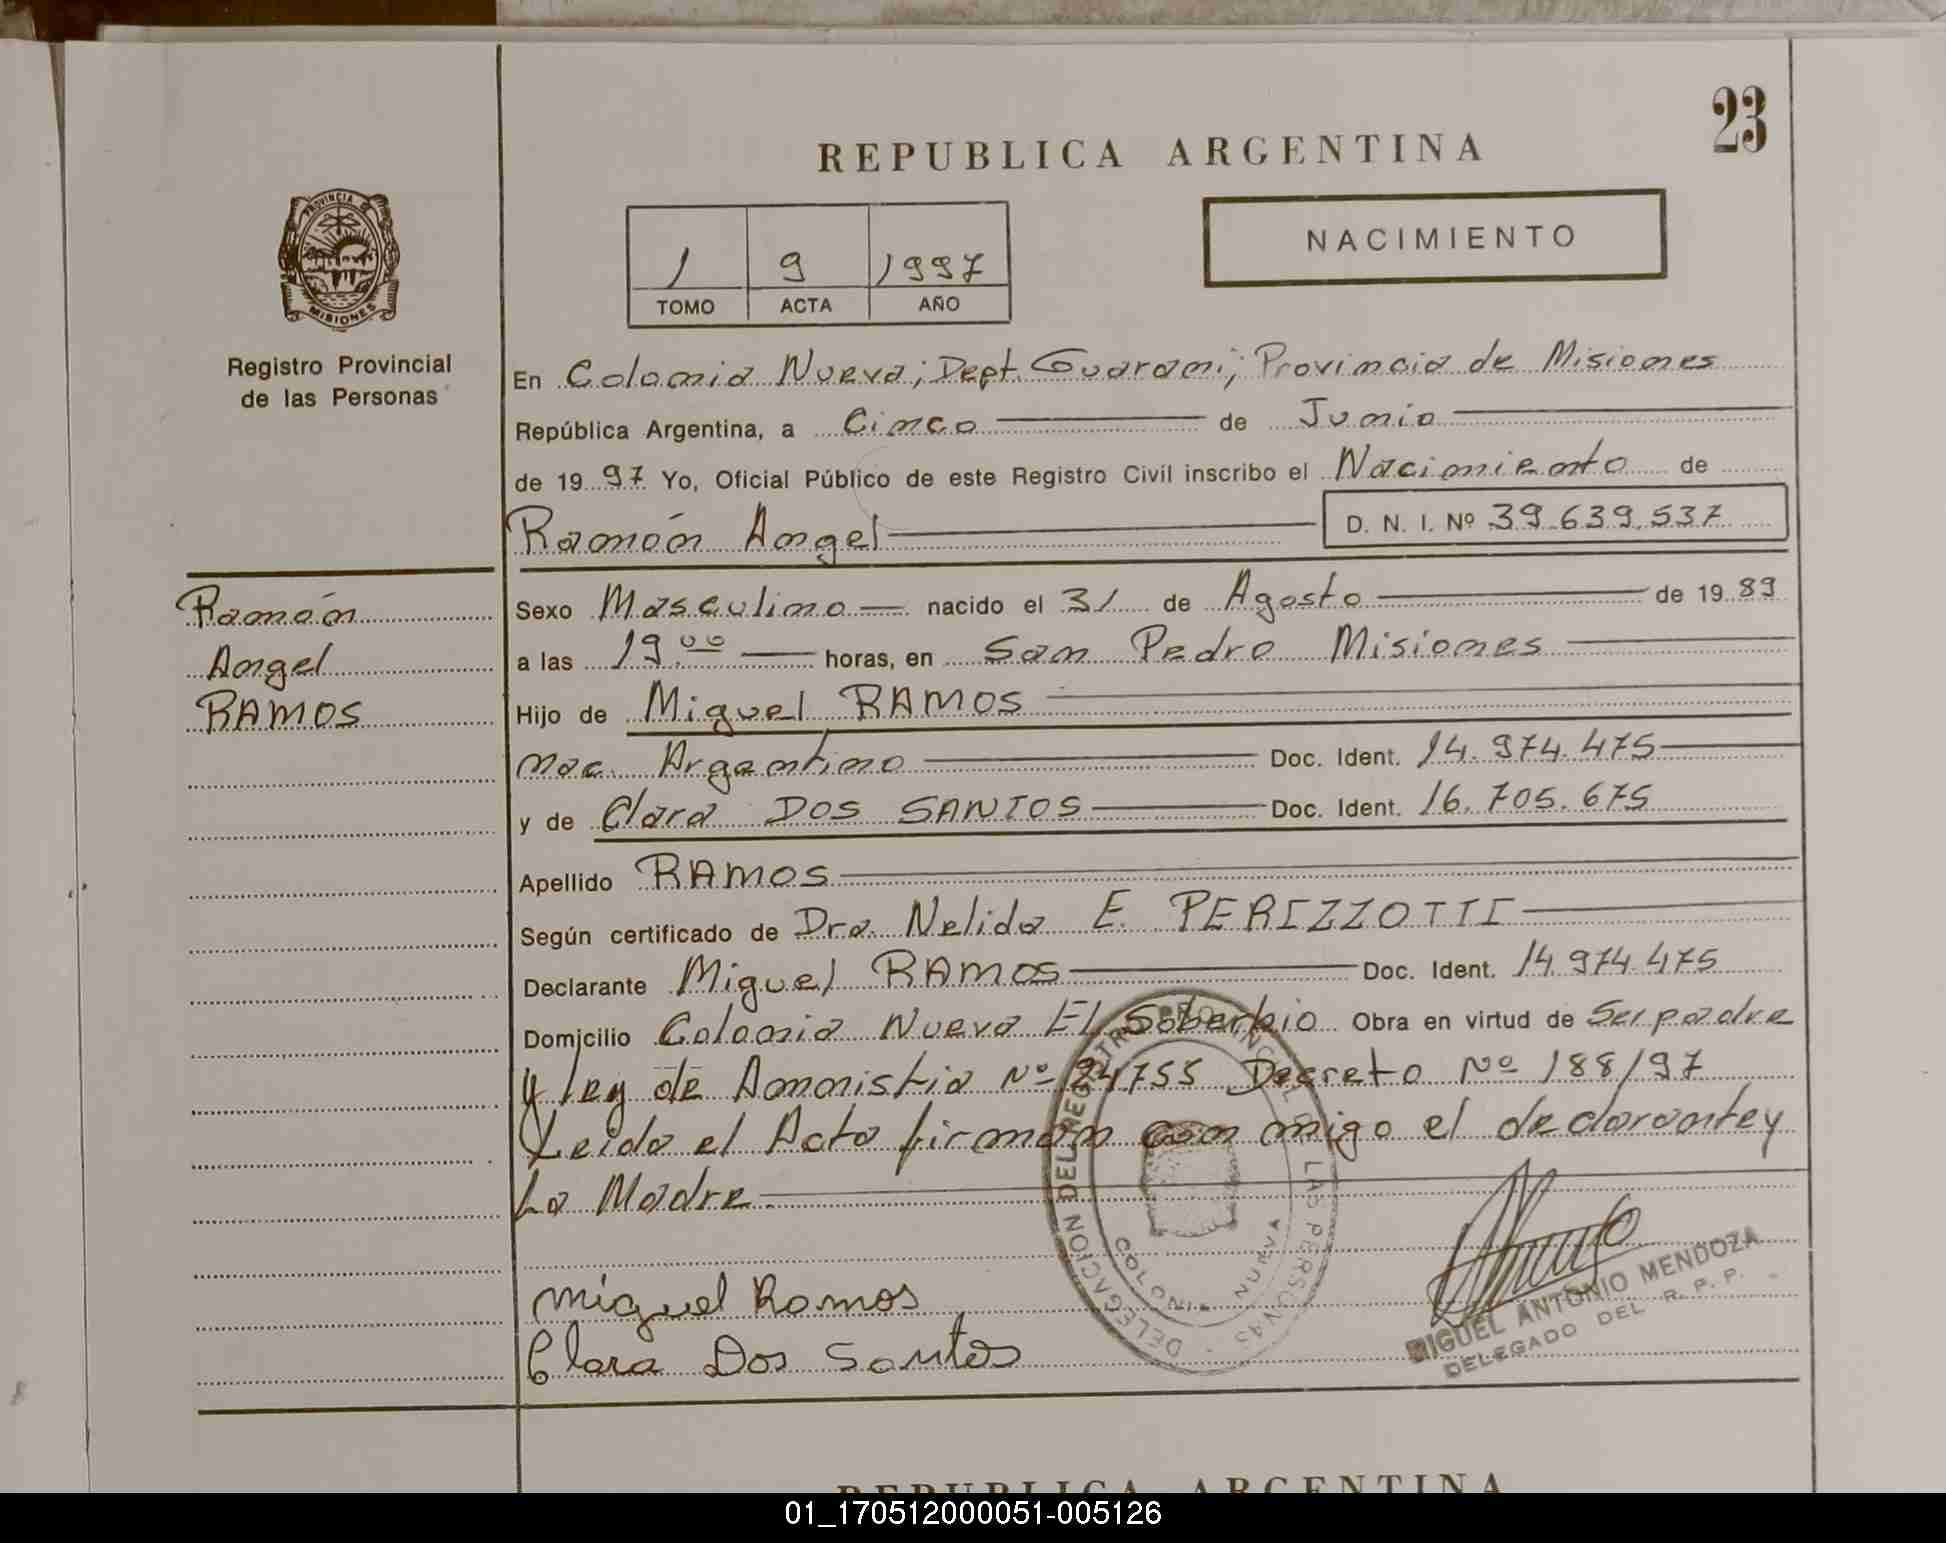 23
REPUBLICA ARGENTINA
NACIMIENTO
1 9 1997
TOMO ACTA AÑO
PROVINCIA DE MISIONES
Registro Provincial
de las Personas
En Colonia Nueva; Dept. Guarani; Provincia de Misiones
República Argentina, a Cinco de Junio
de 1997 Yo, Oficial Público de este Registro Civil inscribo el Nacimiento de
Ramón Angel D. N. I. Nº 39.639.537
Ramón
Angel
RAMOS
Sexo Masculino nacido el 31 de Agosto de 1989
a las 19.00 horas, en San Pedro Misiones
Hijo de Miguel RAMOS
nac. Argentino Doc. Ident. 14.974.475
y de Clara DOS SANTOS Doc. Ident. 16.705.675
Apellido RAMOS
Según certificado de Dra. Nelida E. PERIZZOTTI
Declarante Miguel RAMOS Doc. Ident. 14.974.475
Domicilio Colonia Nueva El Soberbio Obra en virtud de Ser padre
y ley de Amnistia Nº 24755 Decreto Nº 188/97
Leido el Acta firman con migo el declarante y
La Madre.
Miguel Ramos
Clara Dos Santos
DELEGACION DEL REGISTRO PROVINCIAL DE LAS PERSONAS
COLONIA NUEVA
MIGUEL ANTONIO MENDOZA
DELEGADO DEL R. P. P.
REPUBLICA ARGENTINA
01_170512000051-005126